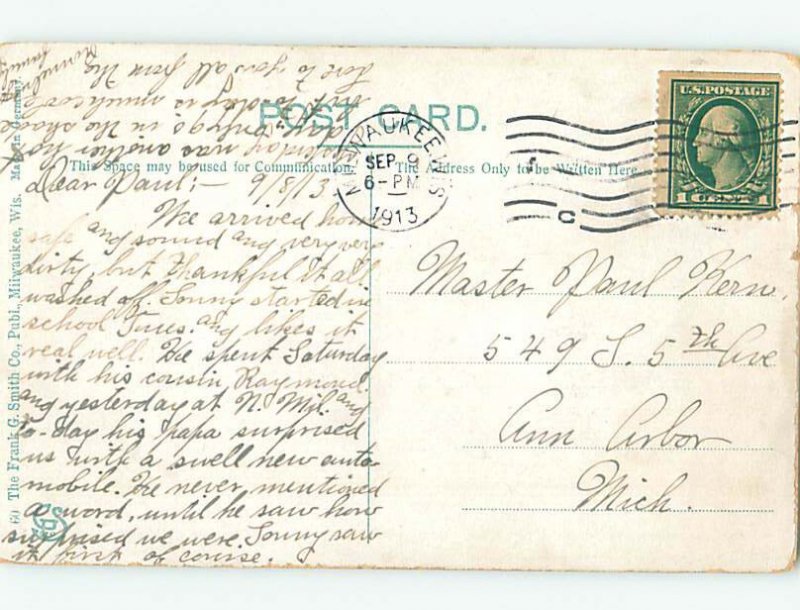 POST CARD.
This Space may be used for Communication.
The Address Only to be Written Here.
U.S. POSTAGE
1 CENT 1
MILWAUKEE, WIS.
SEP 9
6-PM
1913
C
60 The Frank G. Smith Co., Publ., Milwaukee, Wis. Made in Germany.
Dear Paul:- 9/8/13
We arrived home
safe and sound and very very
dirty, but thankful it all
washed off. Sonny started in
school Tues. and likes it
real well. He spent Saturday
with his cousin, Raymond.
and yesterday at N. Mil. and
to-day his papa surprised
us with a swell new auto-
mobile. He never mentioned
a word, until he saw how
surprised we were. Sonny saw
it first of course.
Yesterday was another hot
day in the shade
but to-day is much cooler
Love to you all from the
Family
Master Paul Kern.
549 S. 5th Ave
Ann Arbor
Mich.